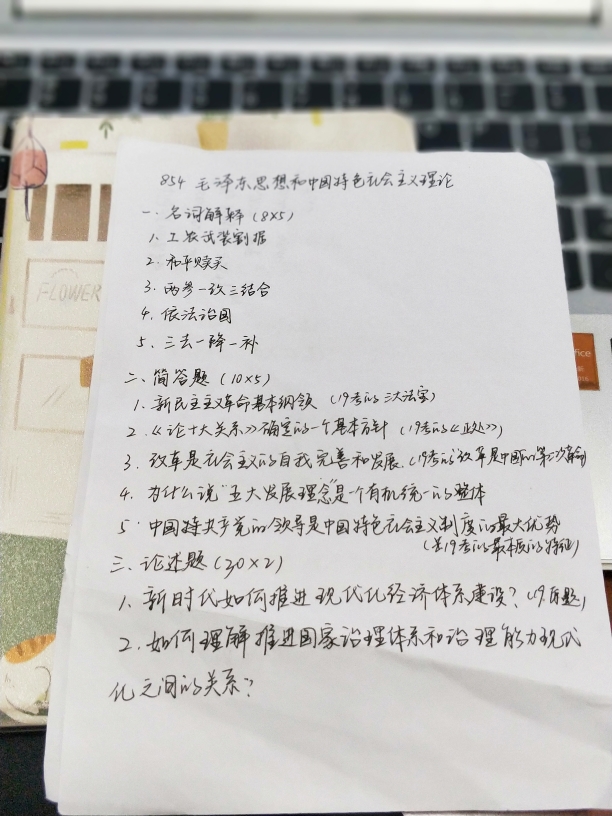 FLOWER
854 毛泽东思想和中国特色社会主义理论
一、名词解释(8×5)
1、工农武装割据
2、和平赎买
3、两参一改三结合
4、依法治国
5、三去一降一补
二、简答题(10×5)
1、新民主主义革命基本纲领(19考的三大法宝)
2、《论十大关系》确定的一个基本方针(19考的《正处》)
3、改革是社会主义的自我完善和发展.(19考的改革是中国的第二次革命)
4、为什么说"五大发展理念"是一个有机统一的整体
5、中国特共产党的领导是中国特色社会主义制度的最大优势
(19考的最本质的特征)
三、论述题(30×2)
1、新时代如何推进现代化经济体系建设?(19原题)
2、如何理解推进国家治理体系和治理能力现代
化之间的关系?